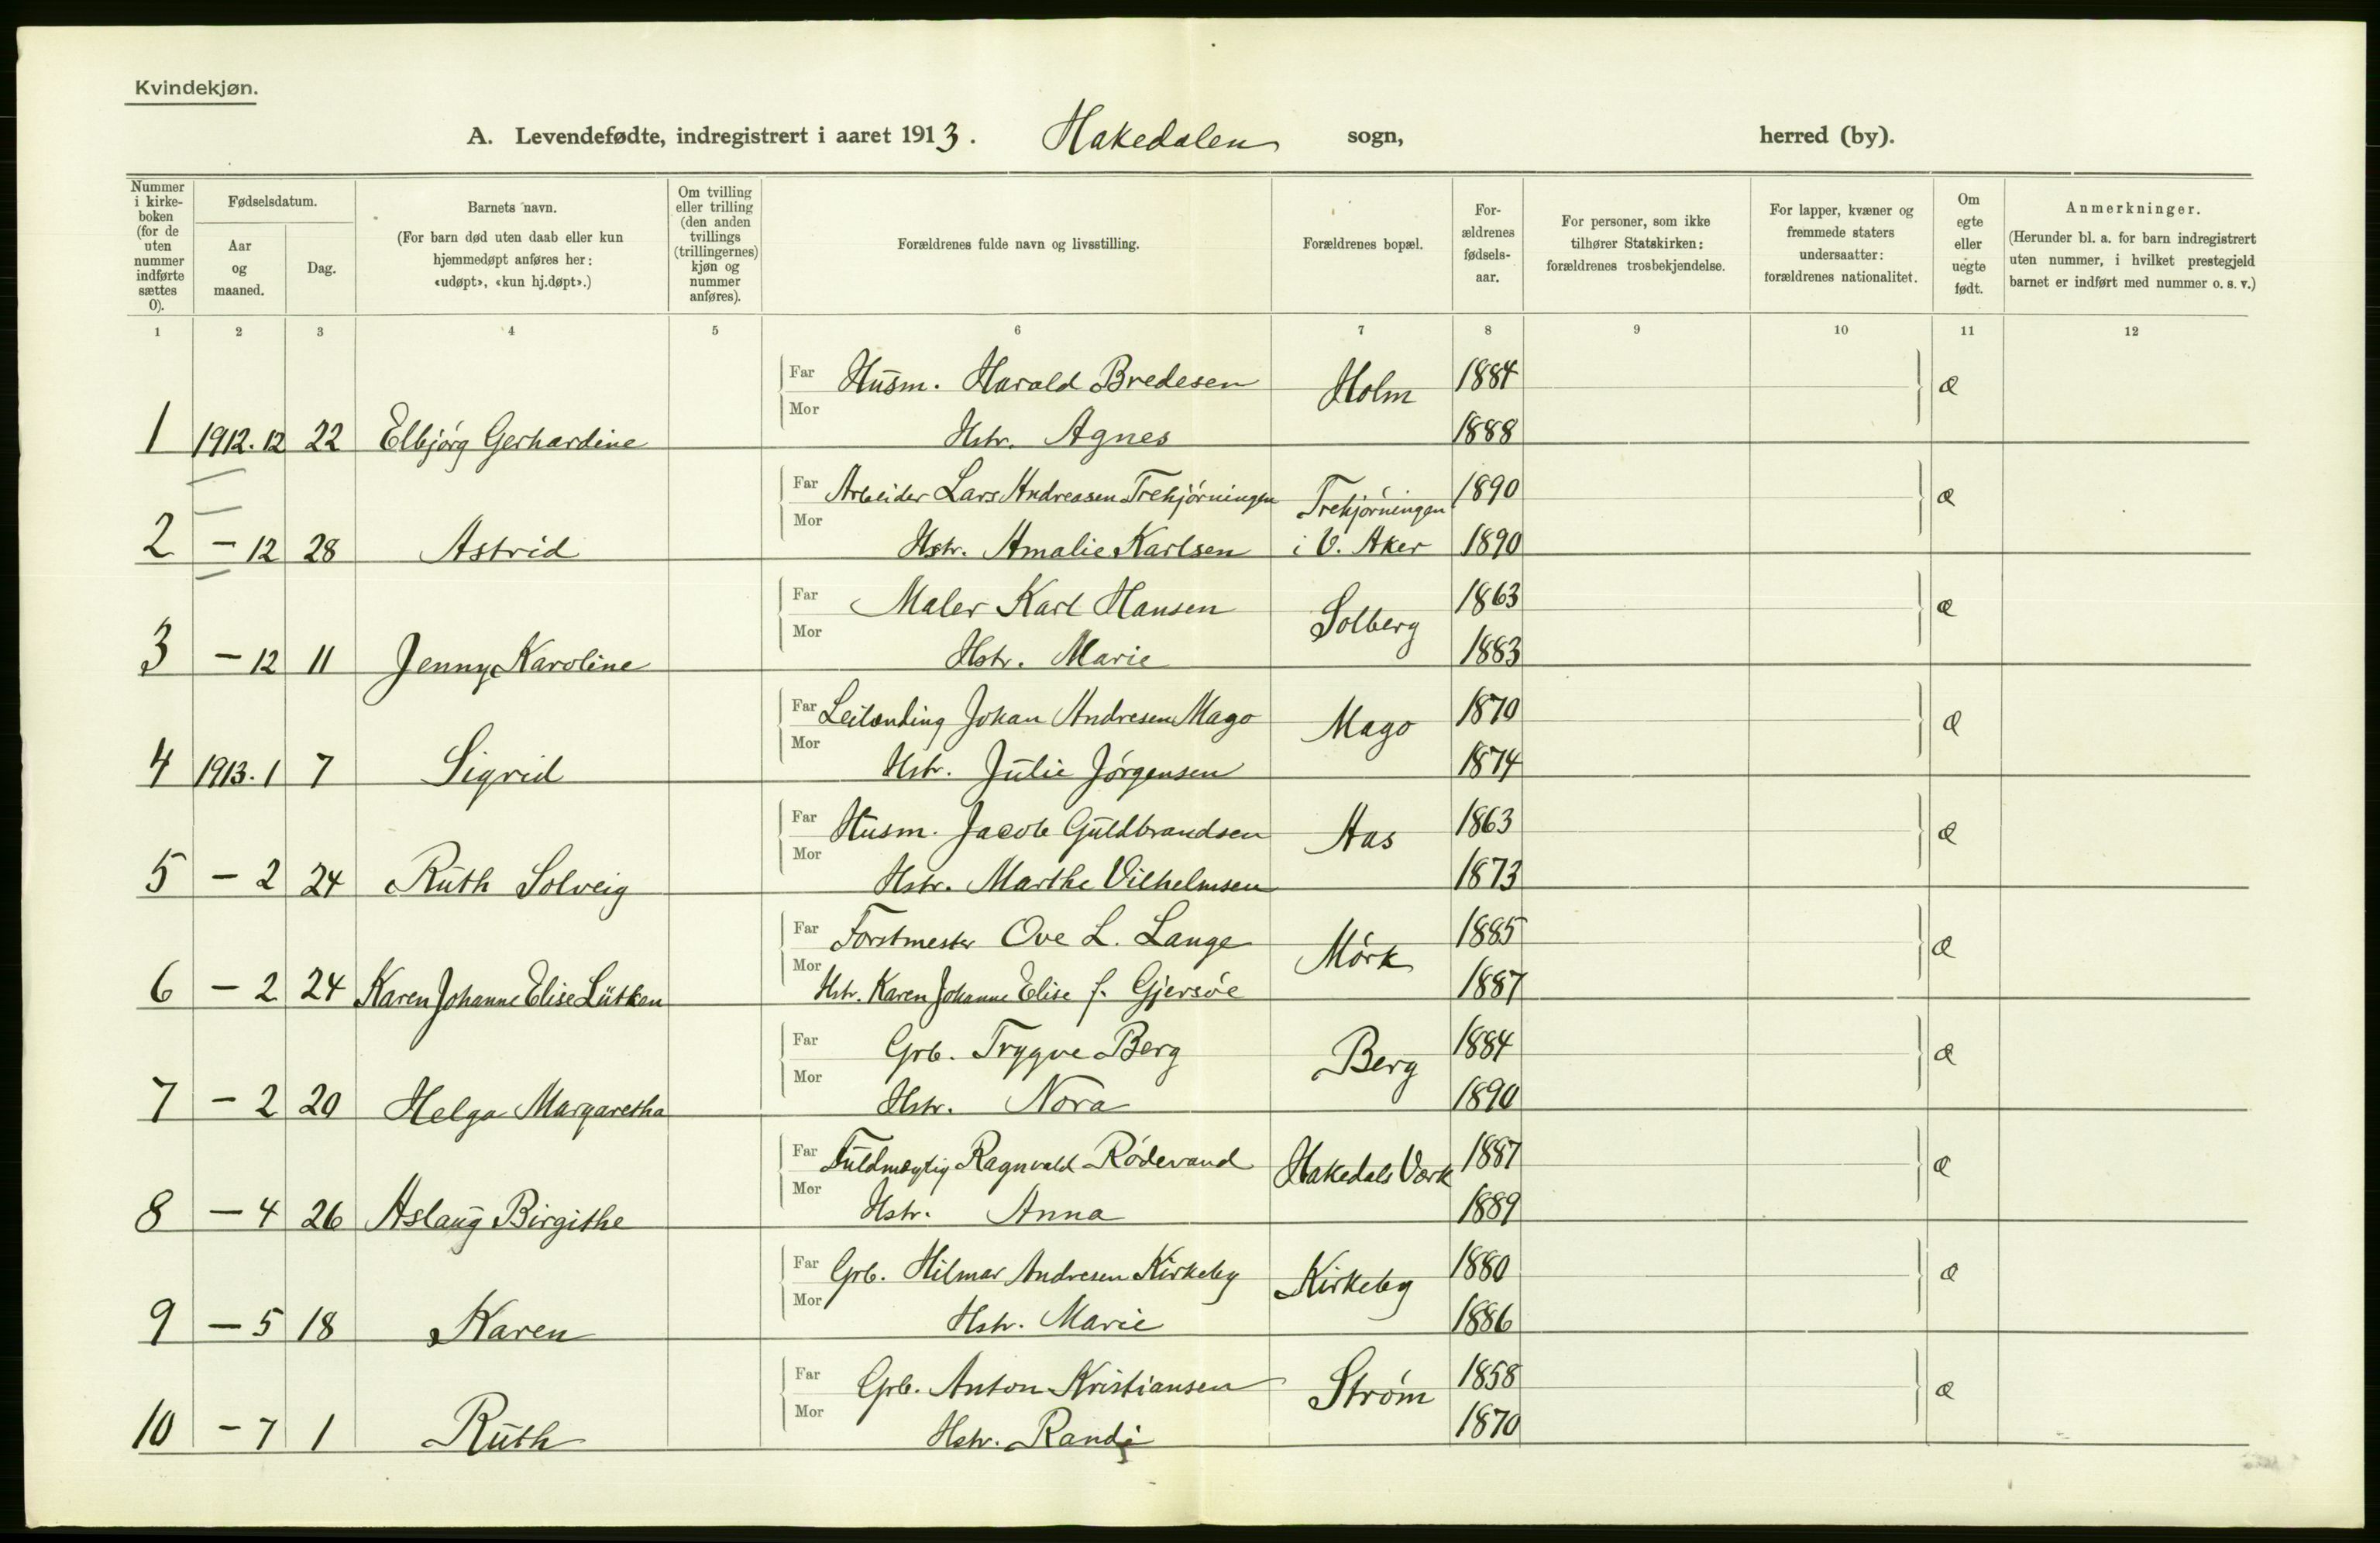 Kvindekjøn.
A. Levendefødte, indregistrert i aaret 1913. Hakedalen sogn, herred (by).
Nummer i kirke-boken (for de uten nummer indførte sættes 0).
Fødselsdatum.
Aar og maaned.
Dag.
Barnets navn.
(For barn død uten daab eller kun hjemmedøpt anføres her: «udøpt», «kun hj.døpt».)
Om tvilling eller trilling (den anden tvillings (trillingernes) kjøn og nummer anføres).
Forældrenes fulde navn og livsstilling.
Forældrenes bopæl.
For-ældrenes fødsels-aar.
For personer, som ikke tilhører Statskirken: forældrenes trosbekjendelse.
For lapper, kvæner og fremmede staters undersaatter: forældrenes nationalitet.
Om egte eller uegte født.
Anmerkninger.
(Herunder bl. a. for barn indregistrert uten nummer, i hvilket prestegjeld barnet er indført med nummer o. s. v.)
1 2 3 4 5 6 7 8 9 10 11 12
Far Husm. Harald Bredesen Holm 1884 æ
1 1912.12 22 Elbjørg Gerhardine Mor Hstr. Agnes 1888
Far Arbeider Lars Andreasen Trehjørningen Trehjørningen 1890 æ
2 – 12 28 Astrid Mor Hstr. Amalie Karlsen i V. Aker 1890
Far Maler Karl Hansen Solberg 1863 æ
3 – 12 11 Jenny Karoline Mor Hstr. Marie 1883
Far Leilænding Johan Andresen Mago Mago 1870 æ
4 1913.1 7 Sigrid Mor Hstr. Julie Jørgensen 1874
Far Husm. Jacob Guldbrandsen Aas 1863 æ
5 – 2 24 Ruth Solveig Mor Hstr. Marthe Vilhelmsen 1873
Far Forstmester Ove L. Lange Mørk 1885 æ
6 – 2 24 Karen Johanne Elise Lütken Mor Hstr. Karen Johanne Elise f. Gjersøe 1887
Far Grb. Trygve Berg Berg 1884 æ
7 – 2 20 Helga Margaretha Mor Hstr. Nora 1890
Far Fuldmægtig Ragnvald Rødevand Hakedals Værk 1887 æ
8 – 4 26 Aslaug Birgithe Mor Hstr. Anna 1889
Far Grb. Hilmar Andresen Kirkeby Kirkeby 1880 æ
9 – 5 18 Karen Mor Hstr. Marie 1886
Far Grb. Anton Kristiansen Strøm 1858 æ
10 – 7 1 Ruth Mor Hstr. Randi 1870